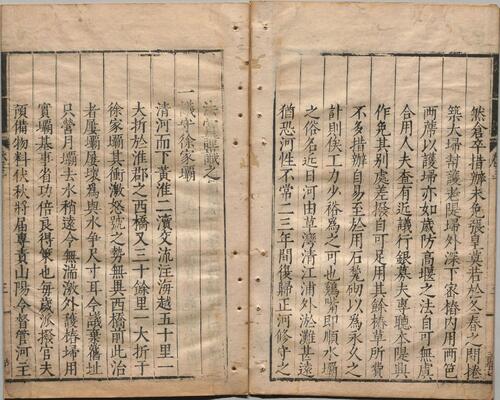 然倉卒措辦未免張皇莫若於冬春之間捲
築大埽幇護老隄埽外深下家樁内用兩笆
兩蓆以護埽亦如歲防高堰之法自可無虞
合用人夫查有近議行銀募夫專聽本隄興
作免其别處差撥自可足用其餘樁草所費
不多措辦自易至於用石甃砌以爲永久之
計則俟工力少裕爲之可也鷄嘴即順水壩
之俗名近日河由草灣清江浦外淤灘甚遠
猶恐河性不常二三年間復歸正河修守之
一議守徐家壩
清河而下黃淮二瀆交流注海越五十里一
大折於淮郡之西橋又三十餘里一大折于
徐家壩其衝激怒號之勢無異西橋前此治
者屢壩屢壞爲與水爭尺寸耳今議棄舊址
只當月壩去水稍遠令無湍激外護樁埽用
實壩基事省功倍良得策也每歲派撥官夫
預備物料伏秋將屆專責山陽令督管河主